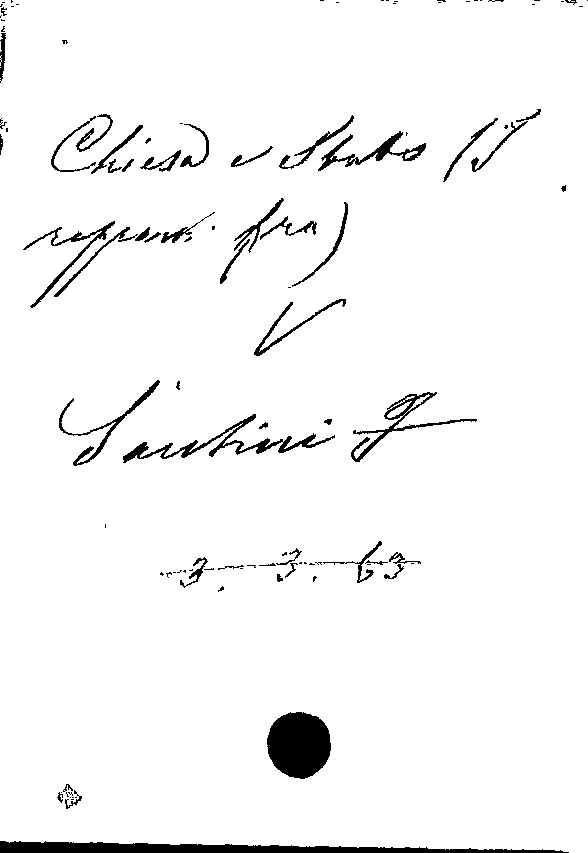 Chiesa e Stato (I
rapporti fra)
V
Santini G
3. 3. 63